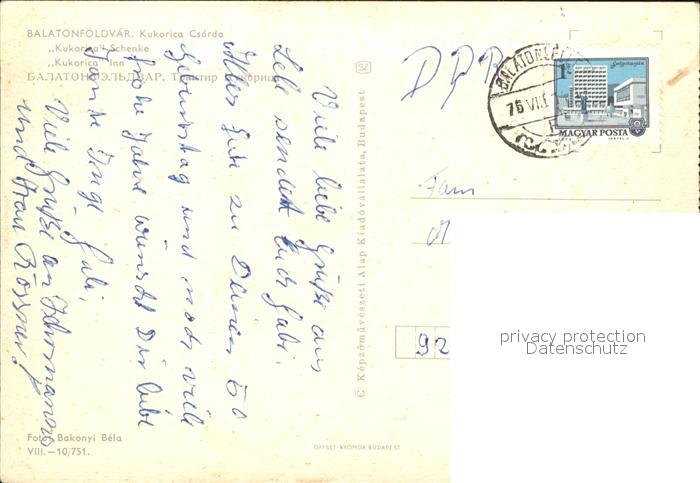 BALATONFÖLDVÁR. Kukorica Csárda
„Kukorica" Schenke
„Kukorica" Inn
БАЛАТОНФЭЛЬДВАР.
Viele liebe Grüße aus
sendet Euch Gabi.
Alles Gute zu Deinem 60.
Geburtstag und noch viele
frohe Jahre wünscht Dir liebe
Tante Inge Gabi.
Viele Grüße an
und Frau Rössner!
Foto: Bakonyi Béla
VIII.—10/751.
© Képzőművészeti Alap Kiadóvállalata, Budapest
OFFSET-NYOMDA BUDAPEST
DDR
75 VII.
1Ft
MAGYAR POSTA
Fam
92
privacy protection
Datenschutz